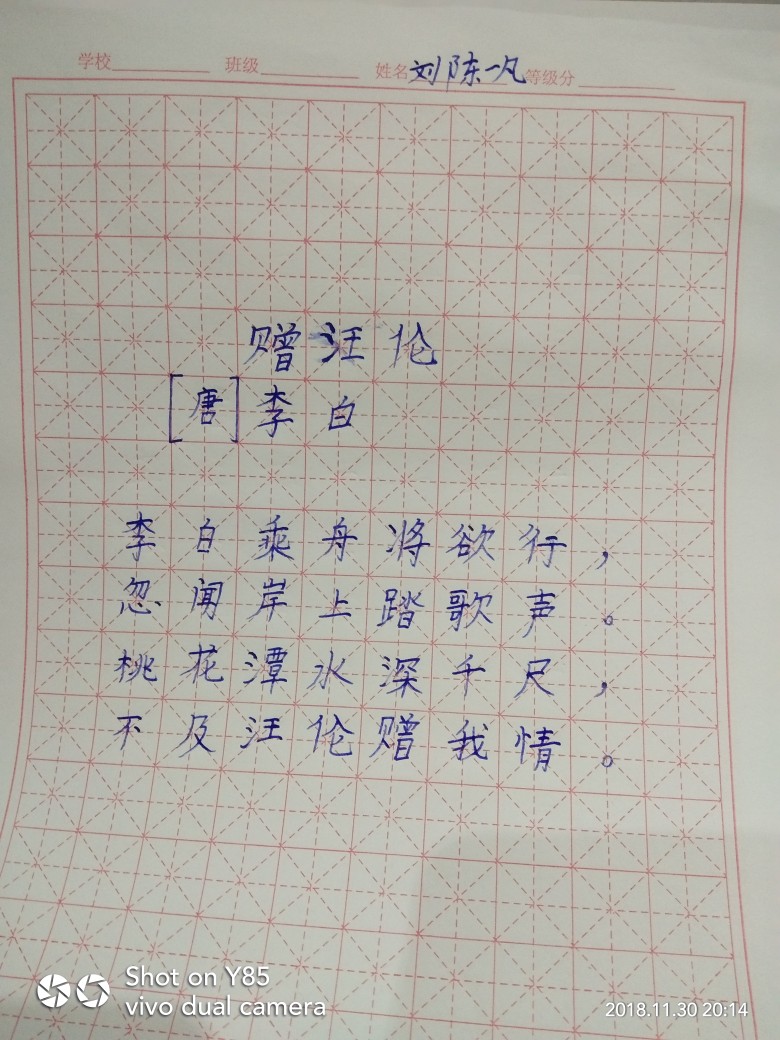 学校 班级 姓名 刘陈一凡 等级分
赠汪伦
[唐]李白
李白乘舟将欲行，
忽闻岸上踏歌声。
桃花潭水深千尺，
不及汪伦赠我情。
Shot on Y85
vivo dual camera
2018.11.30 20:14